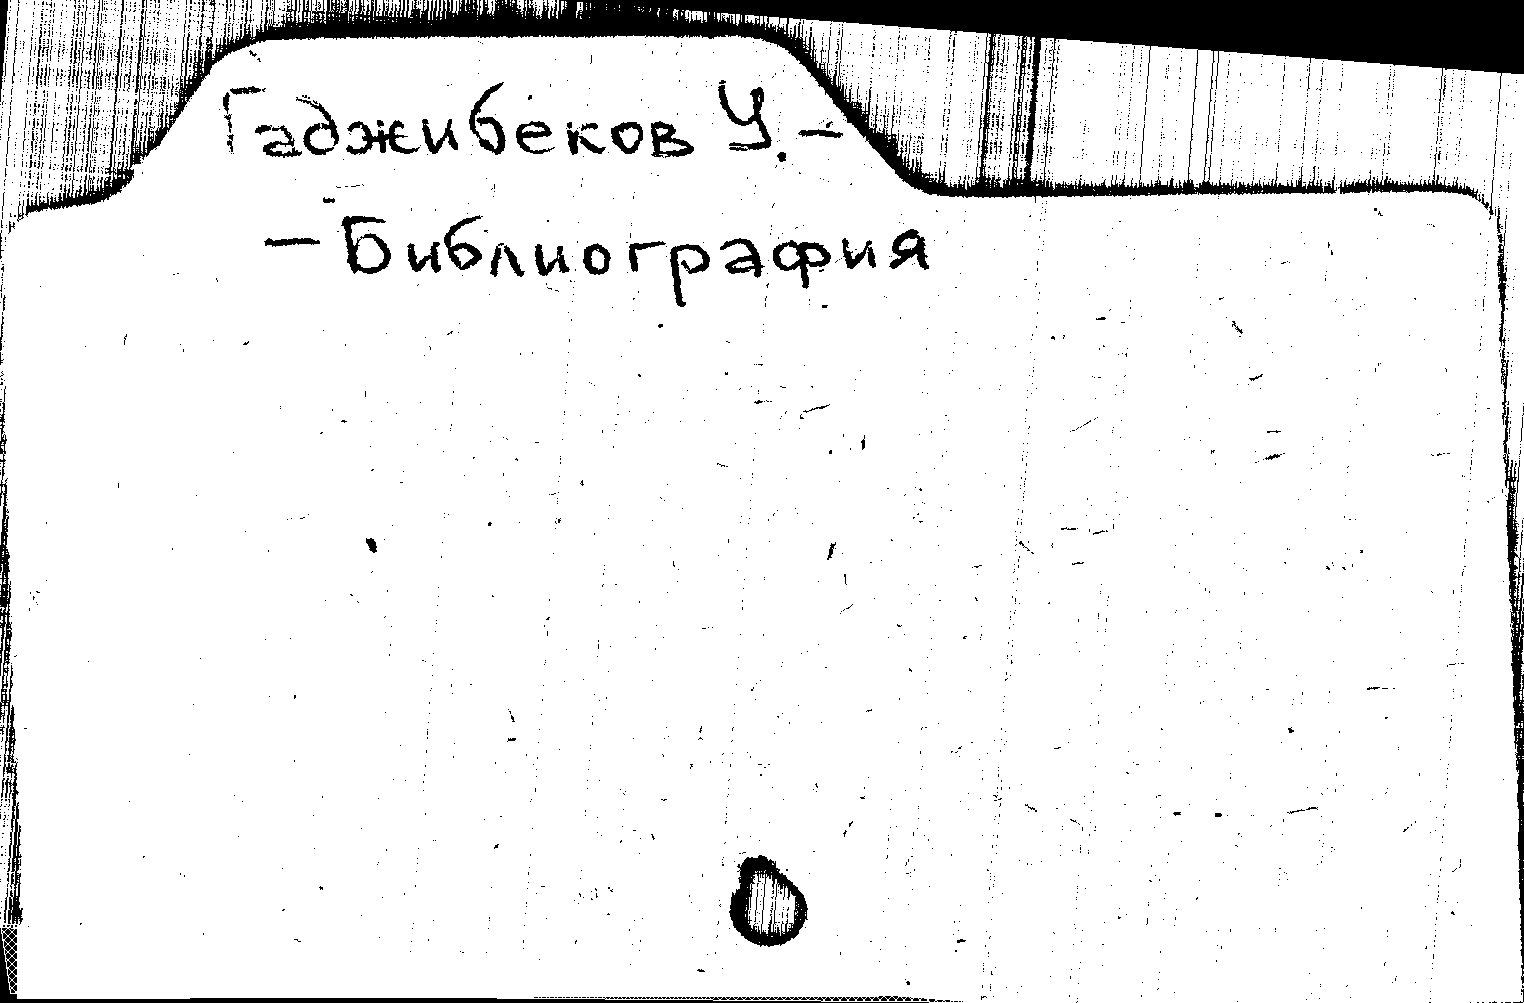 Гаджибеков У. –
– Библиография